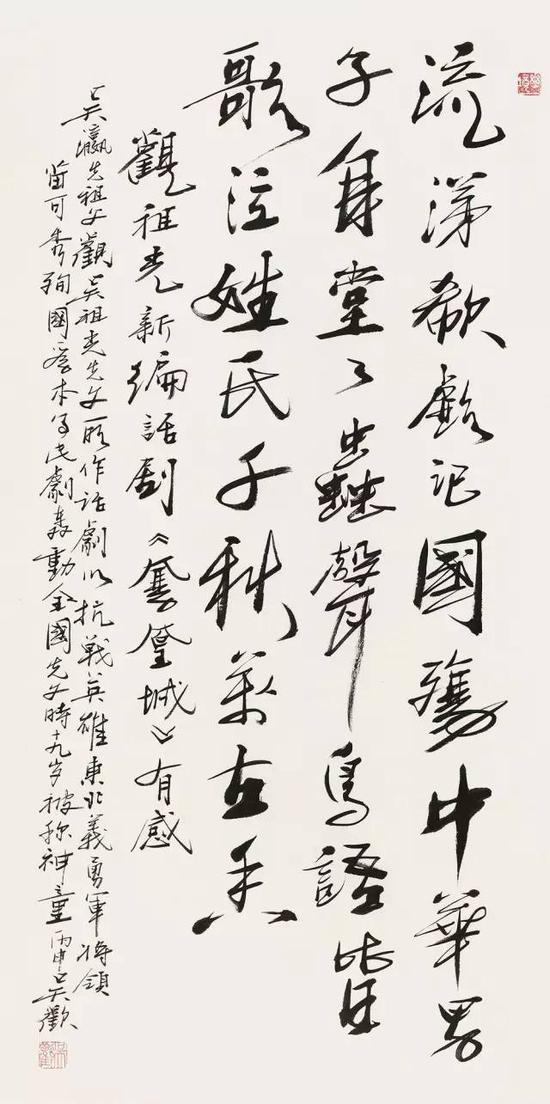 流涕欷歔記國殤中華男
子身堂々蟲聲鳥語皆
歌泣姓氏千秋萬古香
觀祖光新編話劇《鳳凰城》有感
吳瀛先祖父觀吳祖光先父所作話劇以抗戰英雄東北義勇軍將領
苗可秀殉國為本此劇轟動全國先父時十九岁被称神童丙申吳歡